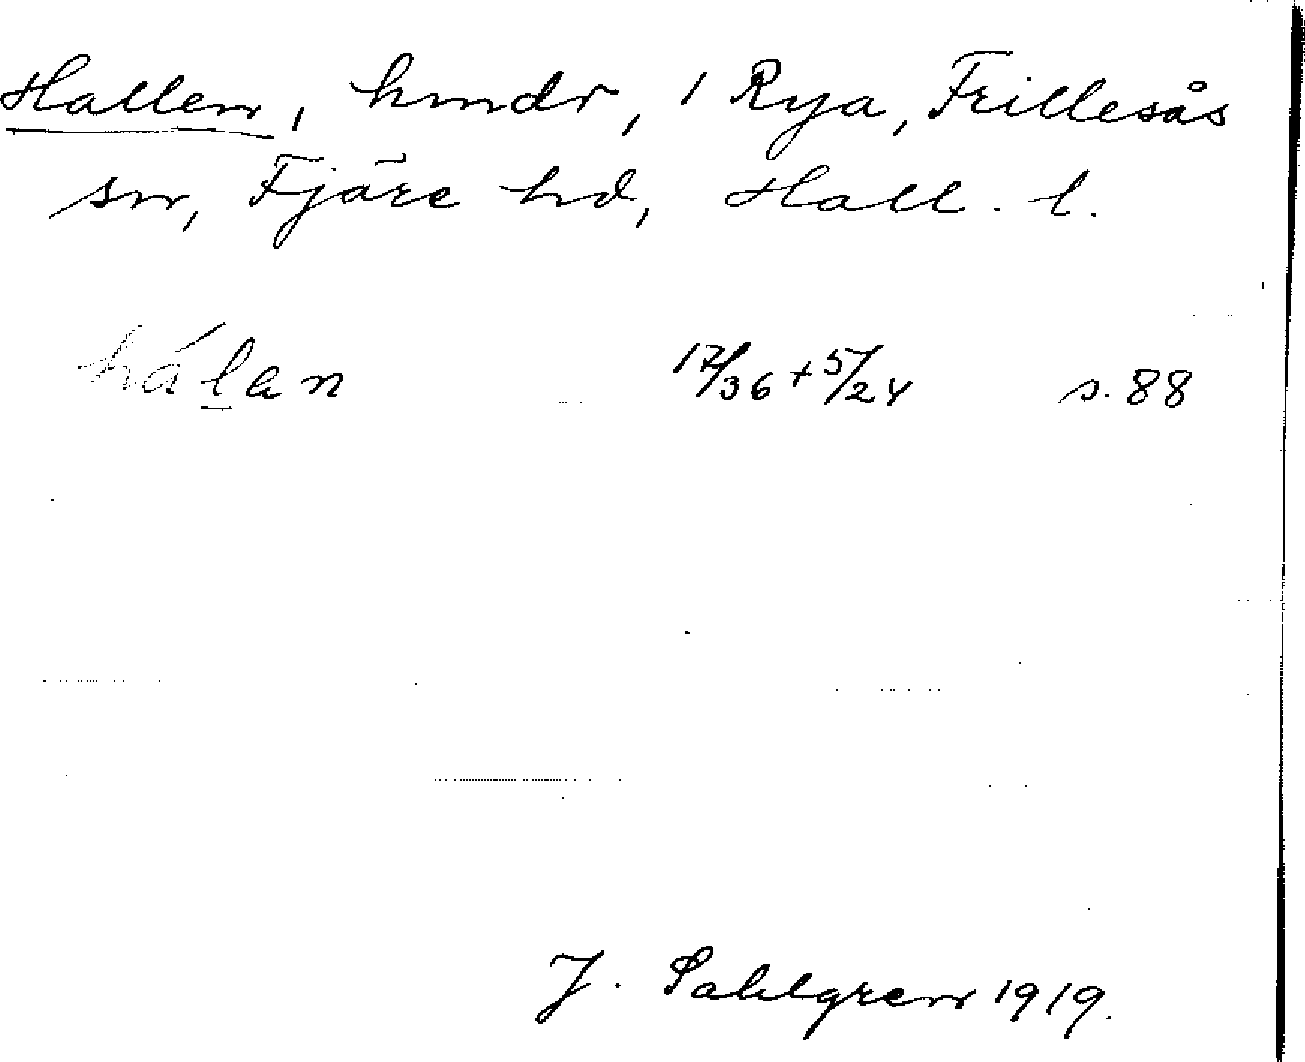 Hallen, hmdr, 1 Rya, Frillesås
sn, Fjäre hd, Hall. l.
hálan 17/36 + 5/24 s. 88
J. Sahlgren 1919.